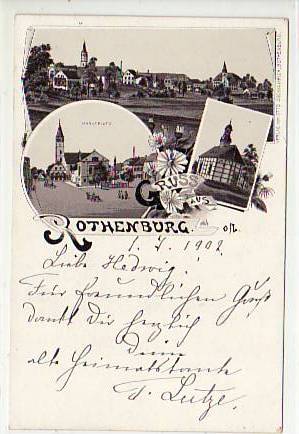 MARKTPLATZ
GRUSS
AUS
ROTHENBURG o/L.
1. 7. 1902.
Liebe Hedwig!
Für freundlichen Gruß
dankt Dir herzlich
Deine
alte Heimatstante
F. Lutze.